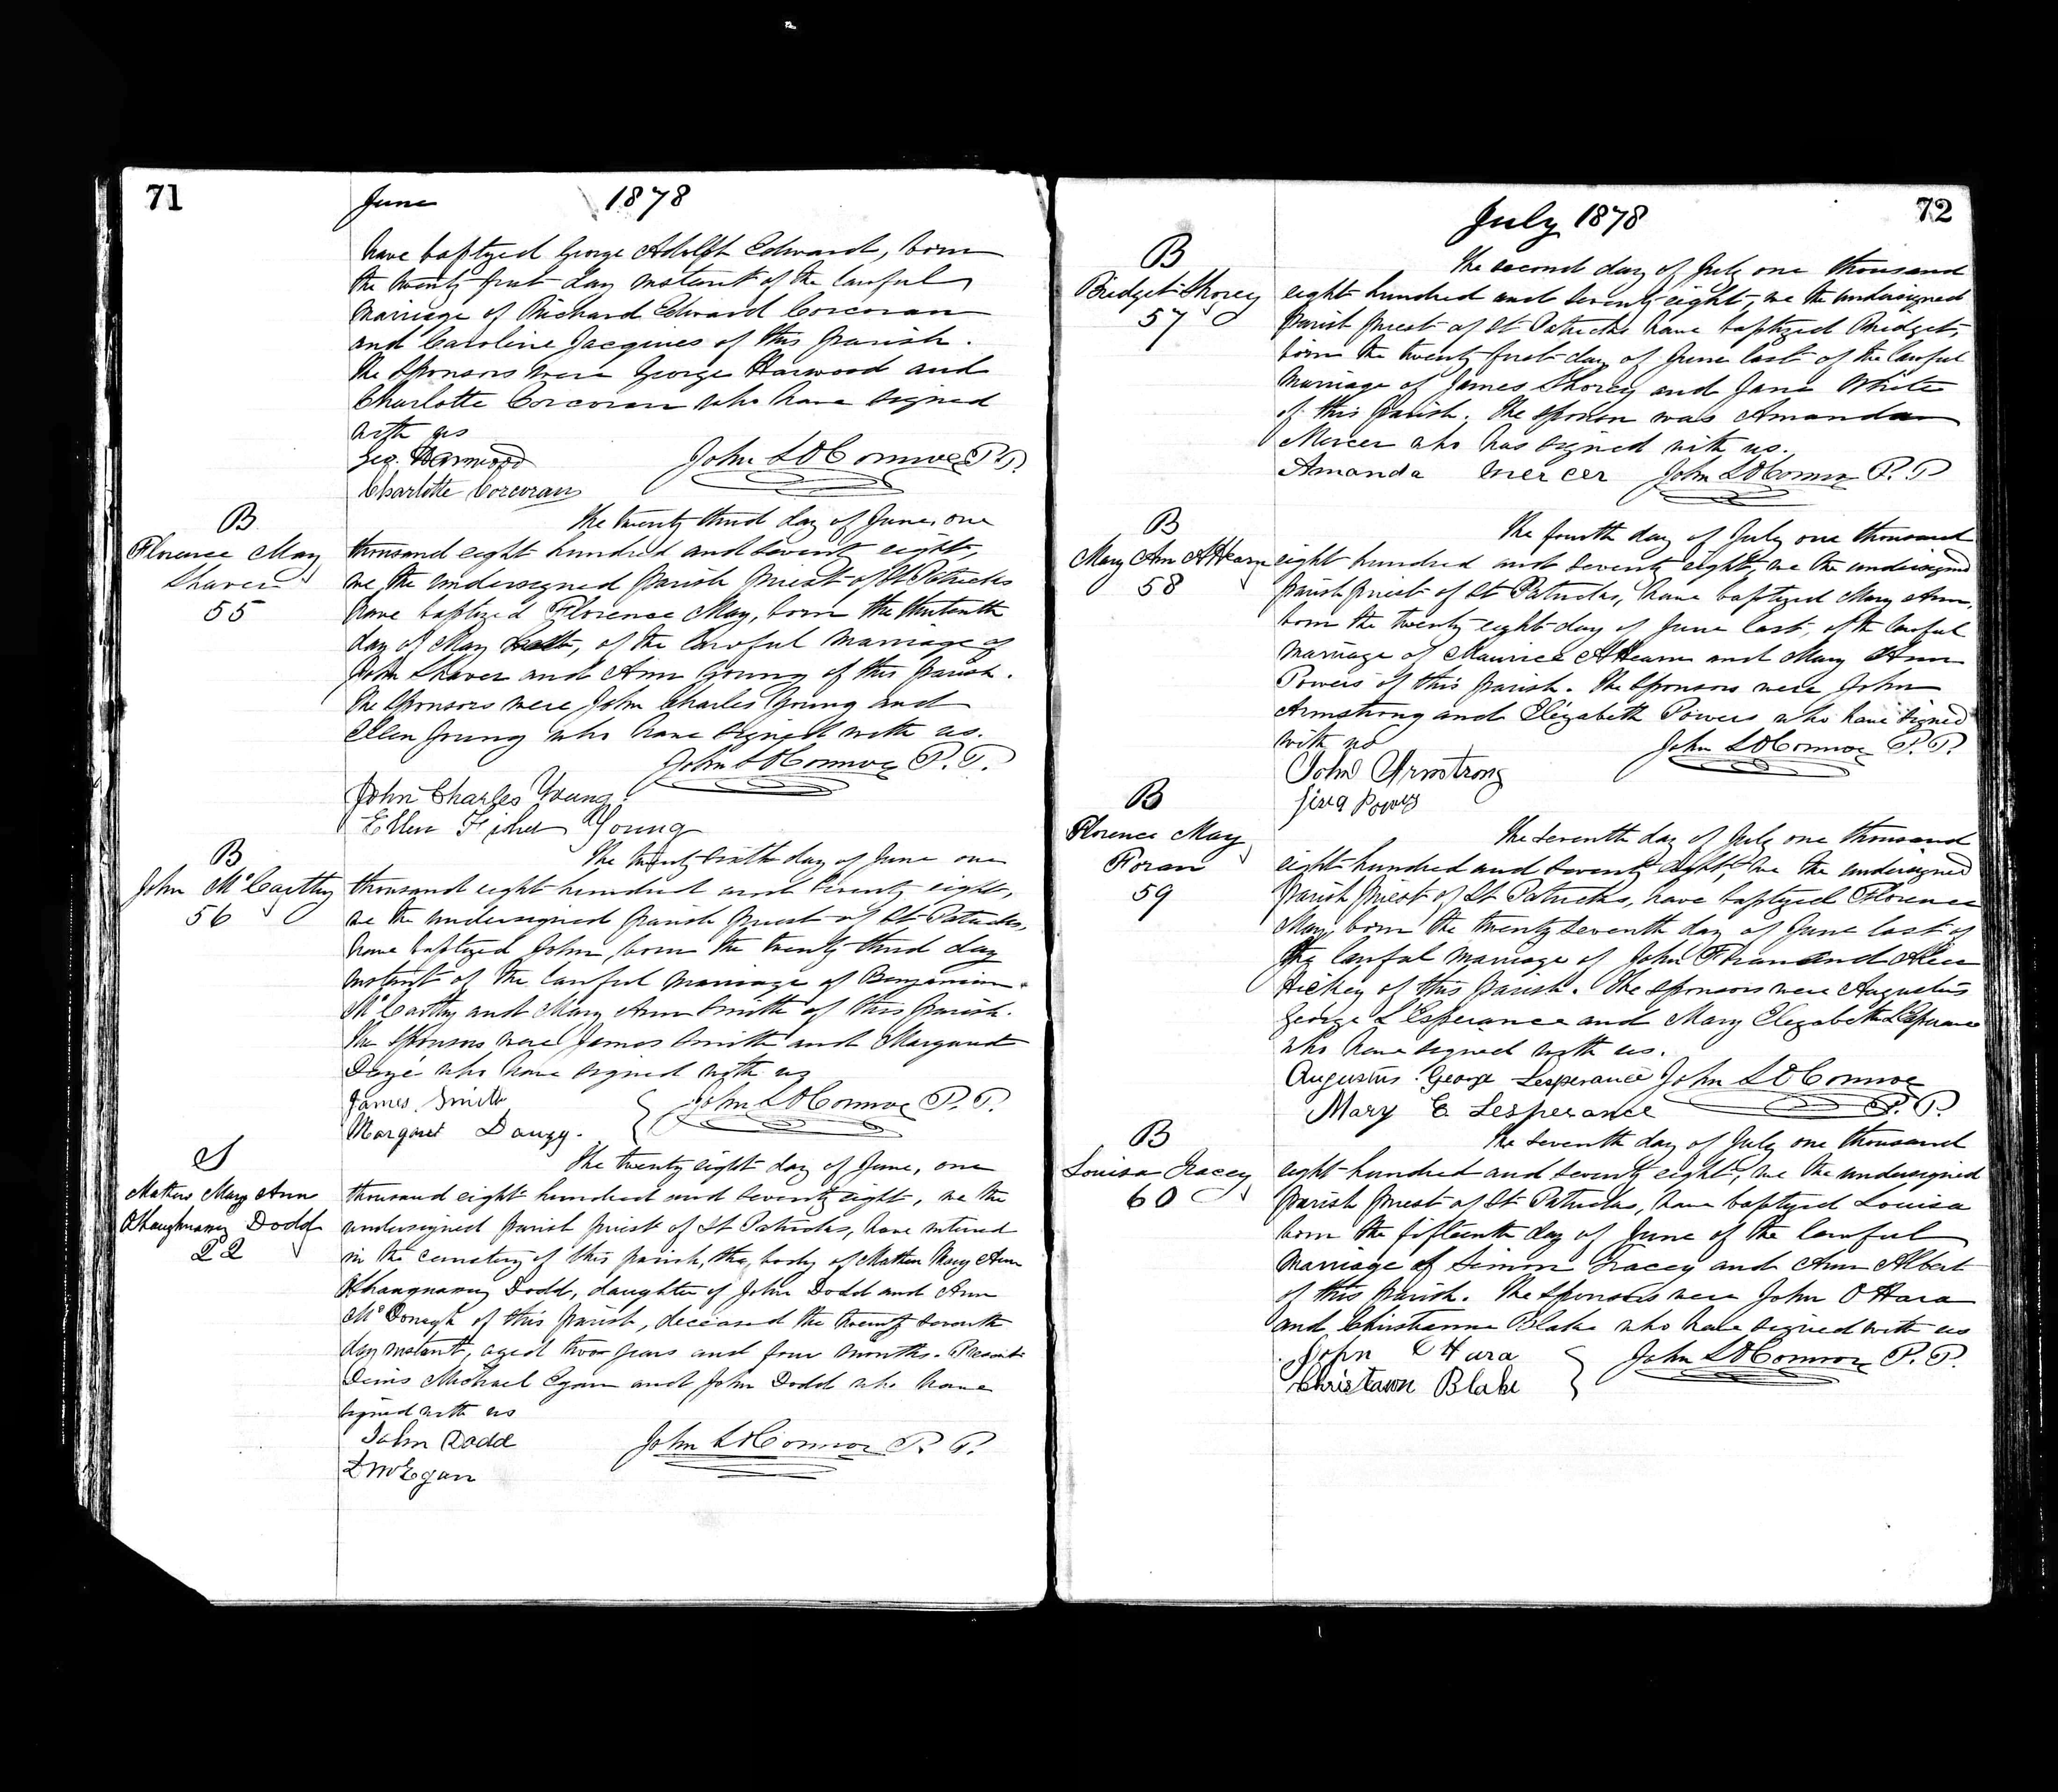 71
June 1878
have baptyed George Adolph Edward, born
the twenty first day instant of the lawful
Marriage of Richard Edward Corcoran
and Caroline Jacquies of this Parish.
The Sponsors were George Harwood and
Charlotte Corcoran who have signed
with us
Geo. Harwood John S OConnor P.P.
Charlotte Corcoran
B
Florence May
Shaver
55
The twenty third day of June, one
thousand eight hundred and seventy eight,
we the undersigned parish priest of St Patricks
have baptyed Florence May, born the thirteenth
day of May, of the lawful marriage of
John Shaver and Ann Young of this parish.
The Sponsors were John Charles Young and
Ellen Young who have signed with us.
John S OConnor P.P.
John Charles Young.
Ellen Fisher Young
B
John McCarthy
56
The twenty sixth day of June one
thousand eight hundred and seventy eight,
we the undersigned parish priest of St Patricks,
have baptyed John, born the twenty third day
instant of the lawful marriage of Benjamin
McCarthy and Mary Ann Smith of this parish.
The Sponsors were James Smith and Margaret
who have signed with us
James Smith John S OConnor P.P.
Margaret
S
Mary Ann
Dodd
22
The twenty eight day of June, one
thousand eight hundred and seventy eight, we the
undersigned parish priest of St Patricks, have intered
in the cemetery of this parish, the body of Mary Ann
Dodd, daughter of John Dodd and Ann
McDonagh of this parish, deceased the twenty seventh
day instant, aged two years and four months. Present
Denis Michael Egan and John Dodd who have
signed with us
John Dodd John S OConnor P.P.
D M Egan
72
July 1878
B
Bridget Shorey
57
The second day of July one thousand
eight hundred and seventy eight, we the undersigned
parish priest of St Patricks have baptyed Bridget,
born the twenty first day of June last of the lawful
marriage of James Shorey and Jane White
of this parish. The sponsor was Amanda
Mercer who has signed with us.
Amanda Mercer John S OConnor P.P
B
Mary Ann AHearn
58
The fourth day of July one thousand
eight hundred and seventy eight, we the undersigned
parish priest of St Patricks, have baptyed Mary Ann,
born the twenty eight day of June last, of the lawful
marriage of Maurice AHearn and Mary Ann
Powers of this parish. The Sponsors were John
Armstrong and Elizabeth Powers who have signed
with us John S OConnor P.P.
John Armstrong
Powers
B
Florence May
Foran
59
The seventh day of July one thousand
eight hundred and seventy eight, we the undersigned
parish priest of St Patricks, have baptyed Florence
May, born the twenty seventh day of June last of
the lawful marriage of John Foran and Alice
Hickey of this parish. The sponsors were Augustus
George L'Esperance and Mary Elizabeth L'Esperance
who have signed with us.
Augustus George Lesperance John S OConnor
Mary E Lesperance P.P.
B
Louisa Tracey
60
The seventh day of July one thousand
eight hundred and seventy eight, we the undersigned
parish priest of St Patricks, have baptyed Louisa
born the fifteenth day of June of the lawful
marriage of Simon Tracey and Ann Albert
of this parish. The Sponsors were John O'Hara
and Christianne Blake who have signed with us
John OHara John S OConnor P.P.
Christawn Blake